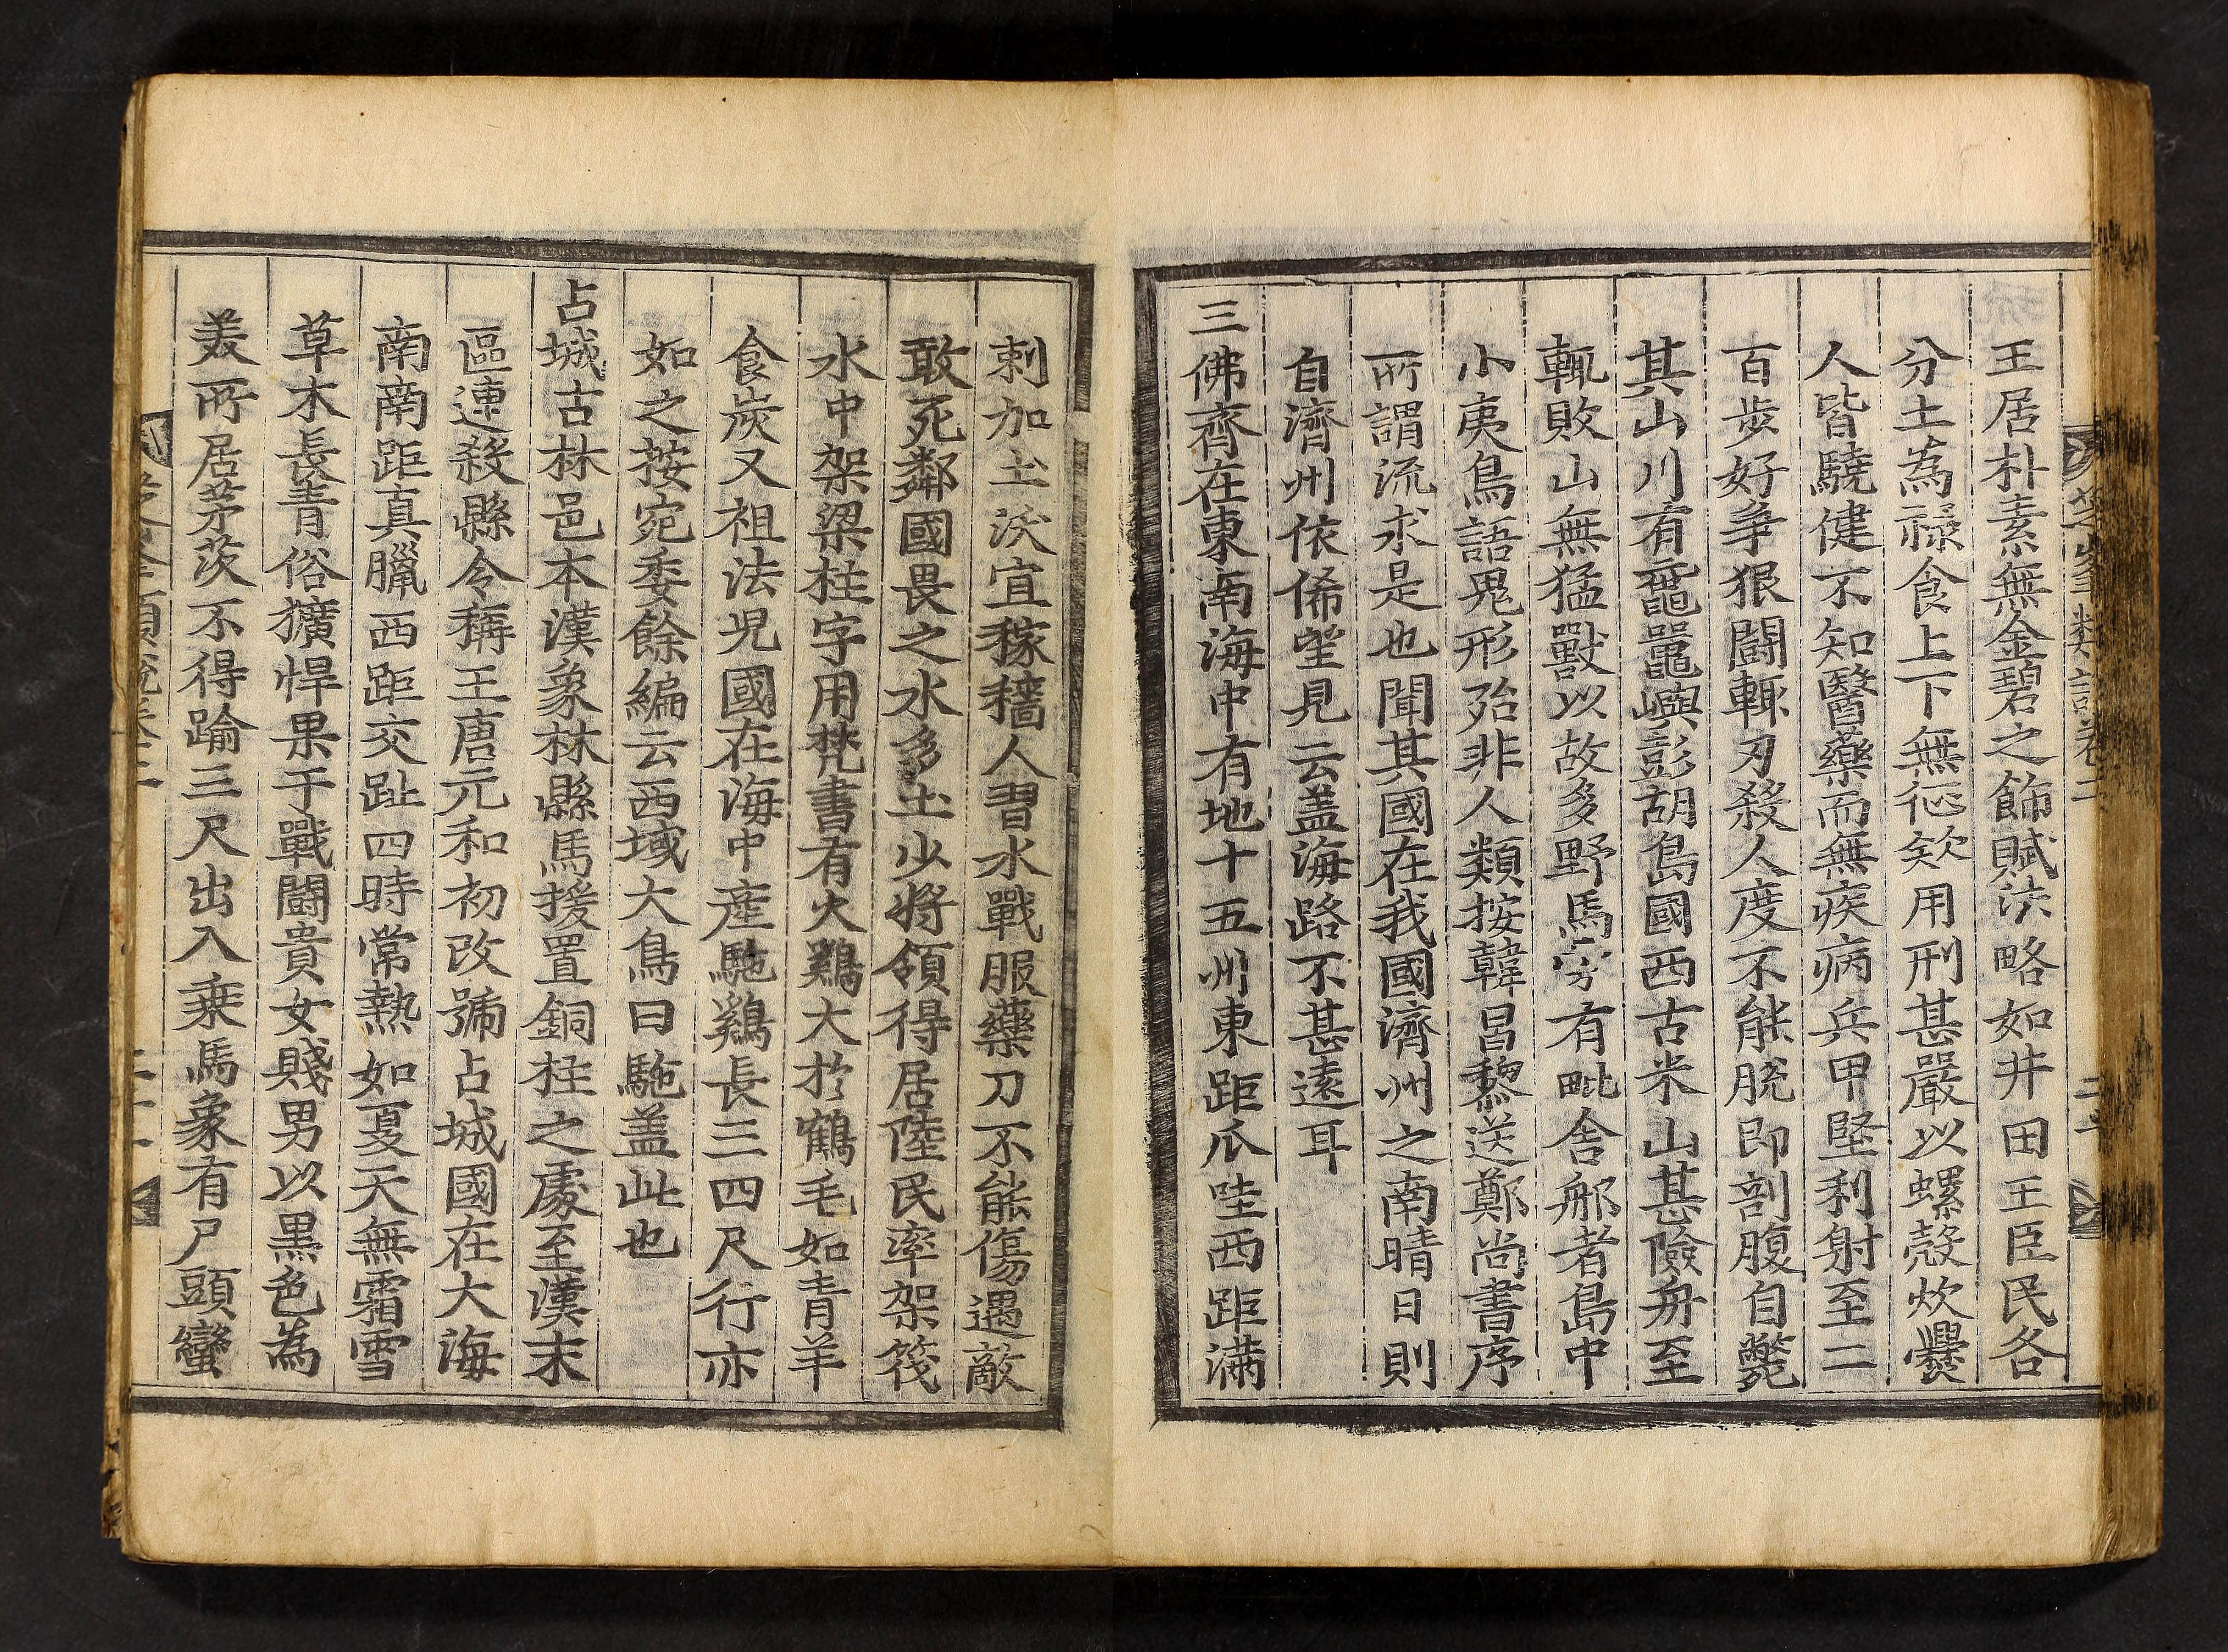 王居朴素無金碧之飾賦法略如井田王臣民各
分土為祿食上下無征欸用刑甚嚴以螺殼炊爨
人皆驍健不知醫藥而無疾病兵甲堅利射至二
百步好爭狠鬪輒刃殺人度不能脫即剖腹自斃
其山川有黿鼊嶼彭胡島國西古米山甚險舟至
輒敗山無猛獸以故多野馬牛有毗舍那者島中
小夷鳥語鬼形殆非人類按韓昌黎送鄭尚書序
所謂流求是也聞其國在我國濟州之南晴日則
自濟州依俙望見云盖海路不甚遠耳
三佛齊在東南海中有地十五州東距爪哇西距滿
剌加土沃宜稼穡人習水戰服藥刀不能傷遇敵
敢死鄰國畏之水多土少將領得居陸民率架筏
水中架梁柱字用梵書有火鷄大於鶴毛如青羊
食炭又祖法児國在海中産駞鷄長三四尺行亦
如之按宛委餘編云西域大鳥曰駞盖此也
占城古林邑本漢象林縣馬援置銅柱之處至漢末
區連殺縣令稱王唐元和初改號占城國在大海
南南距真臘西距交趾四時常熱如夏天無霜雪
草木長青俗獷悍果于戰鬪貴女賤男以黒色為
美所居茅茨不得踰三尺出入乘馬象有尸頭蠻